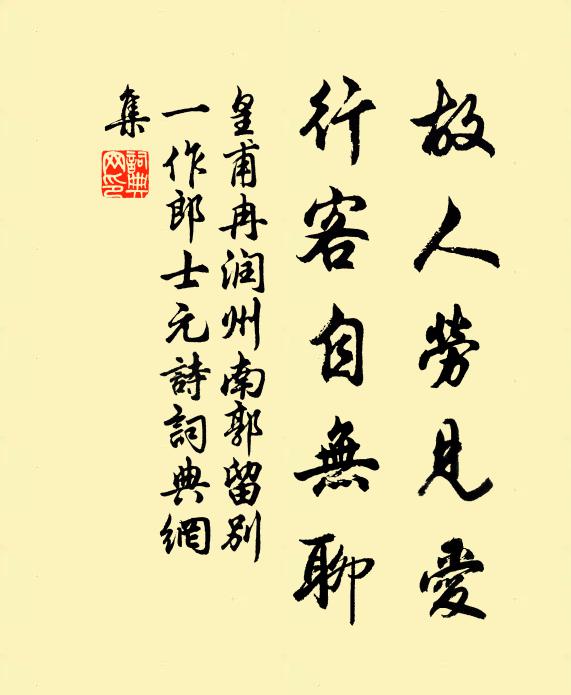 故人勞見愛
行客自無聊
皇甫冉潤州南郭留別
一作郎士元詩詞典網
集
詞典網印